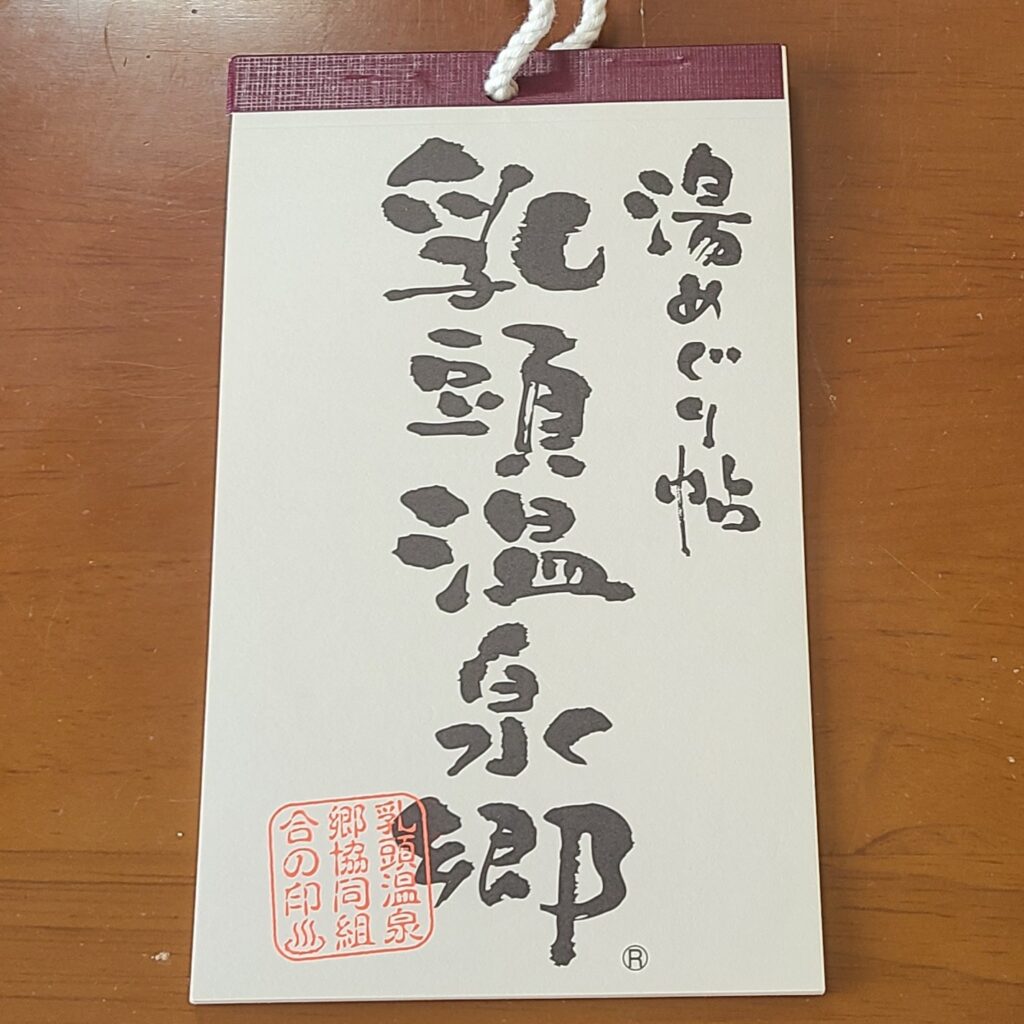 湯めぐり帖
乳頭温泉郷
®
乳頭温泉
郷協同組
合の印♨